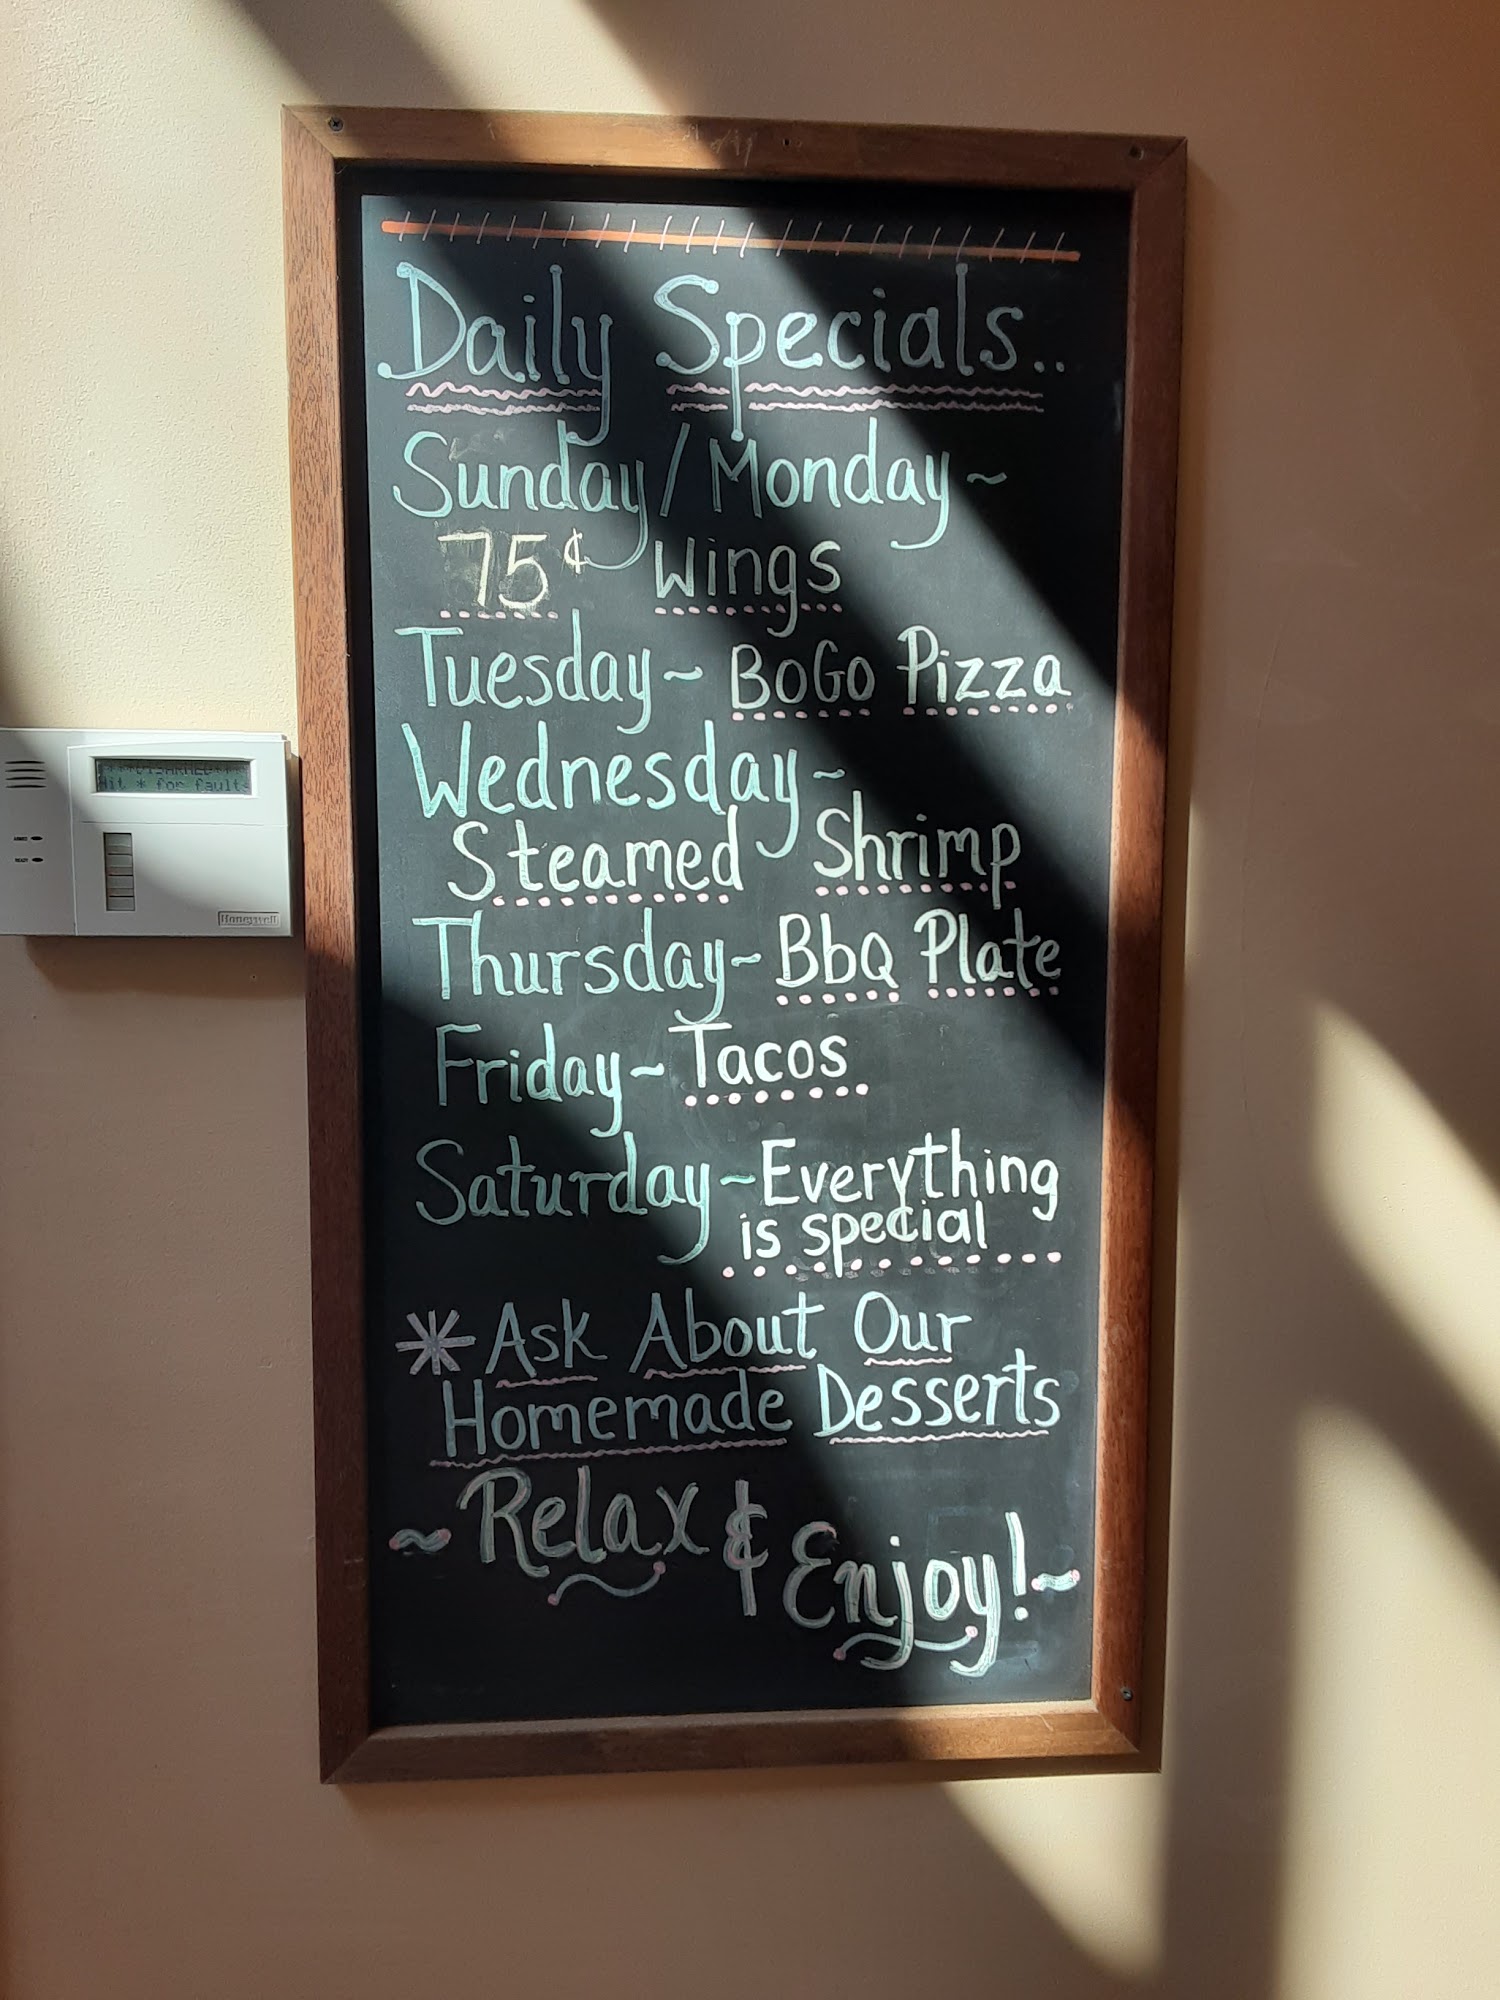 Daily Specials..
Sunday/Monday~
75¢ Wings
Tuesday~ BoGo Pizza
Wednesday~
Steamed Shrimp
Thursday~ BbQ Plate
Friday~ Tacos
Saturday~ Everything
is special
* Ask About Our
Homemade Desserts
~ Relax & Enjoy! ~
***DISARMED***
Hit * for faults
ARMED
READY
Honeywell